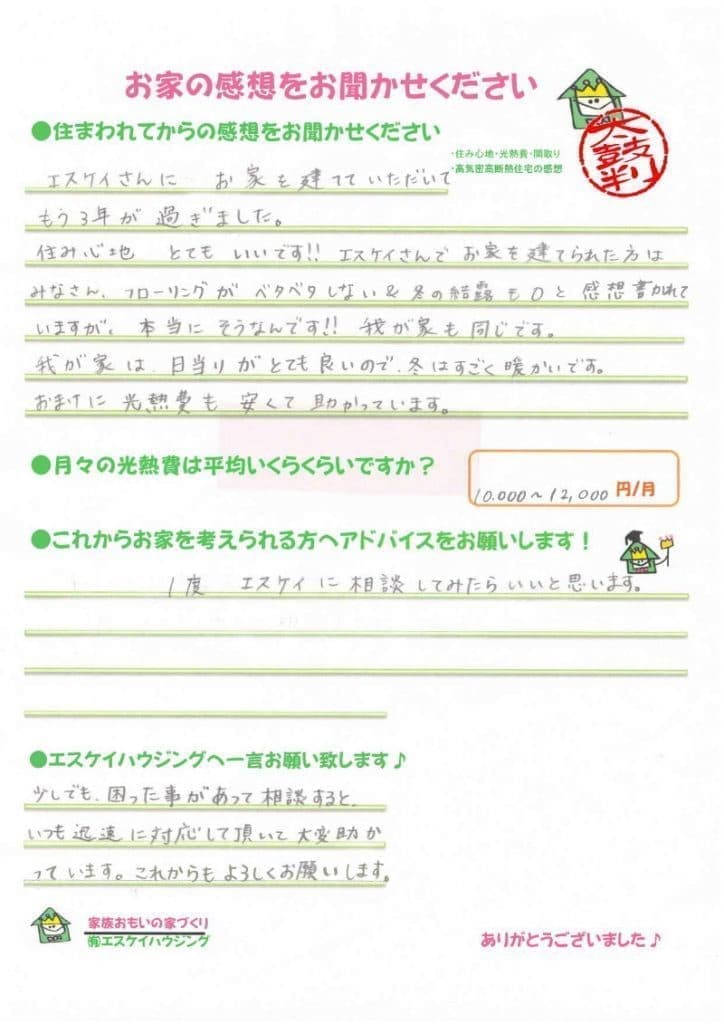 お家の感想をお聞かせください
●住まわれてからの感想をお聞かせください
・住み心地・光熱費・間取り
・高気密高断熱住宅の感想
太鼓判
エスケイさんに お家を建てていただいて
もう3年が過ぎました。
住み心地 とても いいです!! エスケイさんで お家を建てられた方は
みなさん、フローリングが ベタベタしない & 冬の結露も0と 感想書かれて
いますが、本当に そうなんです!! 我が家も同じです。
我が家は、日当りがとても良いので、冬はすごく暖かいです。
おまけに 光熱費も 安くて 助かっています。
●月々の光熱費は平均いくらくらいですか？
10.000〜12,000 円/月
●これからお家を考えられる方へアドバイスをお願いします！
1度 エスケイに相談してみたらいいと思います。
●エスケイハウジングへ一言お願い致します♪
少しでも、困った事があって相談すると、
いつも迅速に対応して頂いて大変助か
っています。これからもよろしくお願いします。
家族おもいの家づくり
㈲エスケイハウジング
ありがとうございました♪